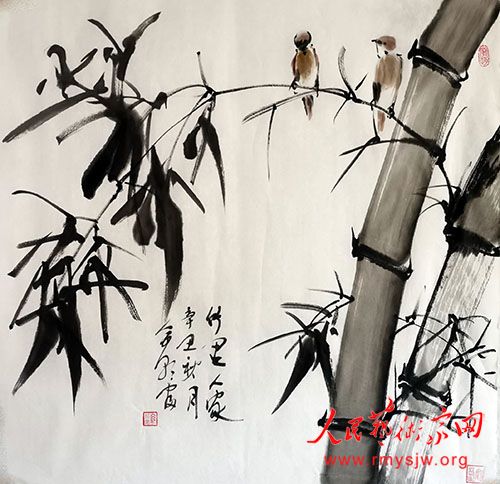 竹里人家
辛丑秋月
人民藝術家网
www.rmysjw.org